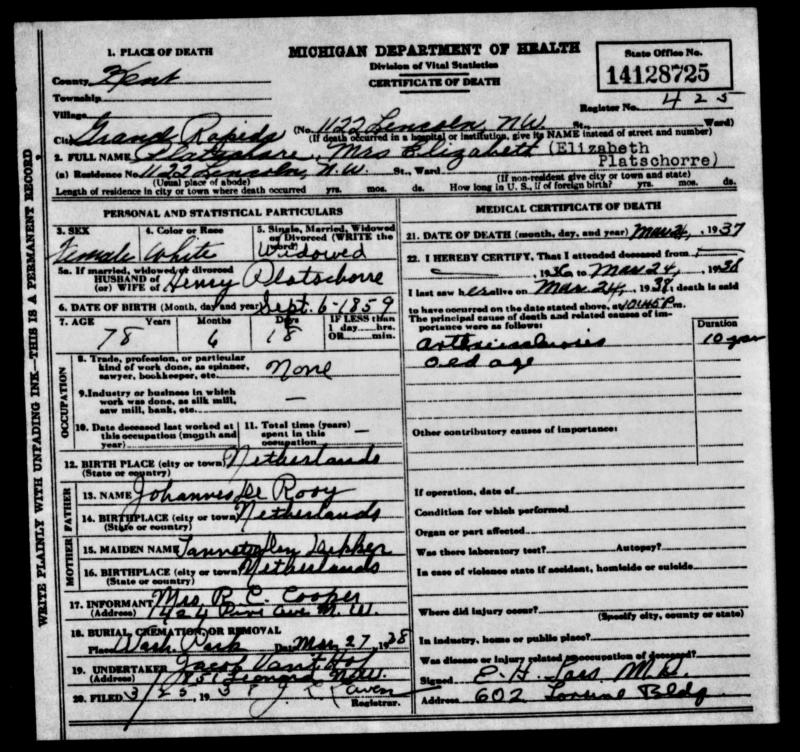 WRITE PLAINLY WITH UNFADING INK—THIS IS A PERMANENT RECORD
1. PLACE OF DEATH
County Kent
Township
Village
City Grand Rapids (No. 1122 Lincoln N.W. St. Ward)
(If death occurred in a hospital or institution, give its NAME instead of street and number)
MICHIGAN DEPARTMENT OF HEALTH
Division of Vital Statistics
CERTIFICATE OF DEATH
State Office No.
14128725
Register No. 425
2. FULL NAME Mrs Elizabeth (Elizabeth
Platschorre)
(a) Residence No. 1122 Lincoln, N.W. St., Ward.
(Usual place of abode) (If non-resident give city or town and state)
Length of residence in city or town where death occurred yrs. mos. ds. How long in U. S., if of foreign birth? yrs. mos. ds.
PERSONAL AND STATISTICAL PARTICULARS
3. SEX Female
4. Color or Race White
5. Single, Married, Widowed or Divorced (WRITE the word) Widowed
5a. If married, widowed or divorced
HUSBAND of
(or) WIFE of Henry Platschorre
6. DATE OF BIRTH (Month, day and year) Sept. 6-1859
7. AGE Years Months Days IF LESS than
1 day hrs.
OR min.
78 6 18
OCCUPATION
8. Trade, profession, or particular
kind of work done, as spinner,
sawyer, bookkeeper, etc. None
9. Industry or business in which
work was done, as silk mill,
saw mill, bank, etc. —
10. Date deceased last worked at
this occupation (month and
year)
11. Total time (years)
spent in this
occupation —
12. BIRTH PLACE (city or town) Netherlands
(State or country)
FATHER
13. NAME Johannes De Rooy
14. BIRTHPLACE (city or town) Netherlands
(State or country)
MOTHER
15. MAIDEN NAME Dekker
16. BIRTHPLACE (city or town) Netherlands
(State or country)
17. INFORMANT Mrs R. C. Cooper
(Address) Pine Ave N.W.
18. BURIAL, CREMATION, OR REMOVAL
Place Wash. Park Date Mar 27, 1938
19. UNDERTAKER Jacob Van't Hof
(Address) 851 Leonard N.W.
20. FILED 3/25 1938
Registrar.
MEDICAL CERTIFICATE OF DEATH
21. DATE OF DEATH (month, day, and year) Mar 24, 1937
22. I HEREBY CERTIFY, That I attended deceased from
, 1936 to Mar 24, 1938
I last saw her alive on Mar 24, 1938, death is said
to have occurred on the date stated above, at 10:45 P m.
The principal cause of death and related causes of im-
portance were as follows:
Duration
10 year
old age
Other contributory causes of importance:
If operation, date of
Condition for which performed
Organ or part affected
Was there laboratory test? Autopsy?
In case of violence state if accident, homicide or suicide
Where did injury occur?
(Specify city, county or state)
In industry, home or public place?
Was disease or injury related to occupation of deceased?
Signed E. H. M.D.
Address 602 Bldg